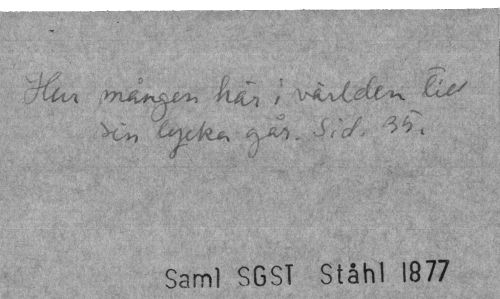 Hur mången här i världen till
sin lycka går. Sid. 35.
Saml SGST Ståhl 1877